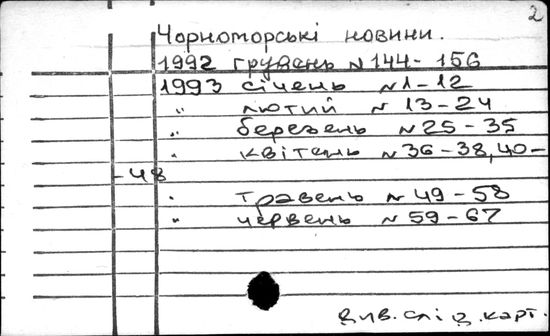 2
Чорноморські новини.
1992 грудень N 144- 156
1993 січень N 1-12
" лютий N 13-24
" березень N 25-35
" квітень N 36-38,40-
-48
" травень N 49-58
" червень N 59-67
Див. слід. карт.